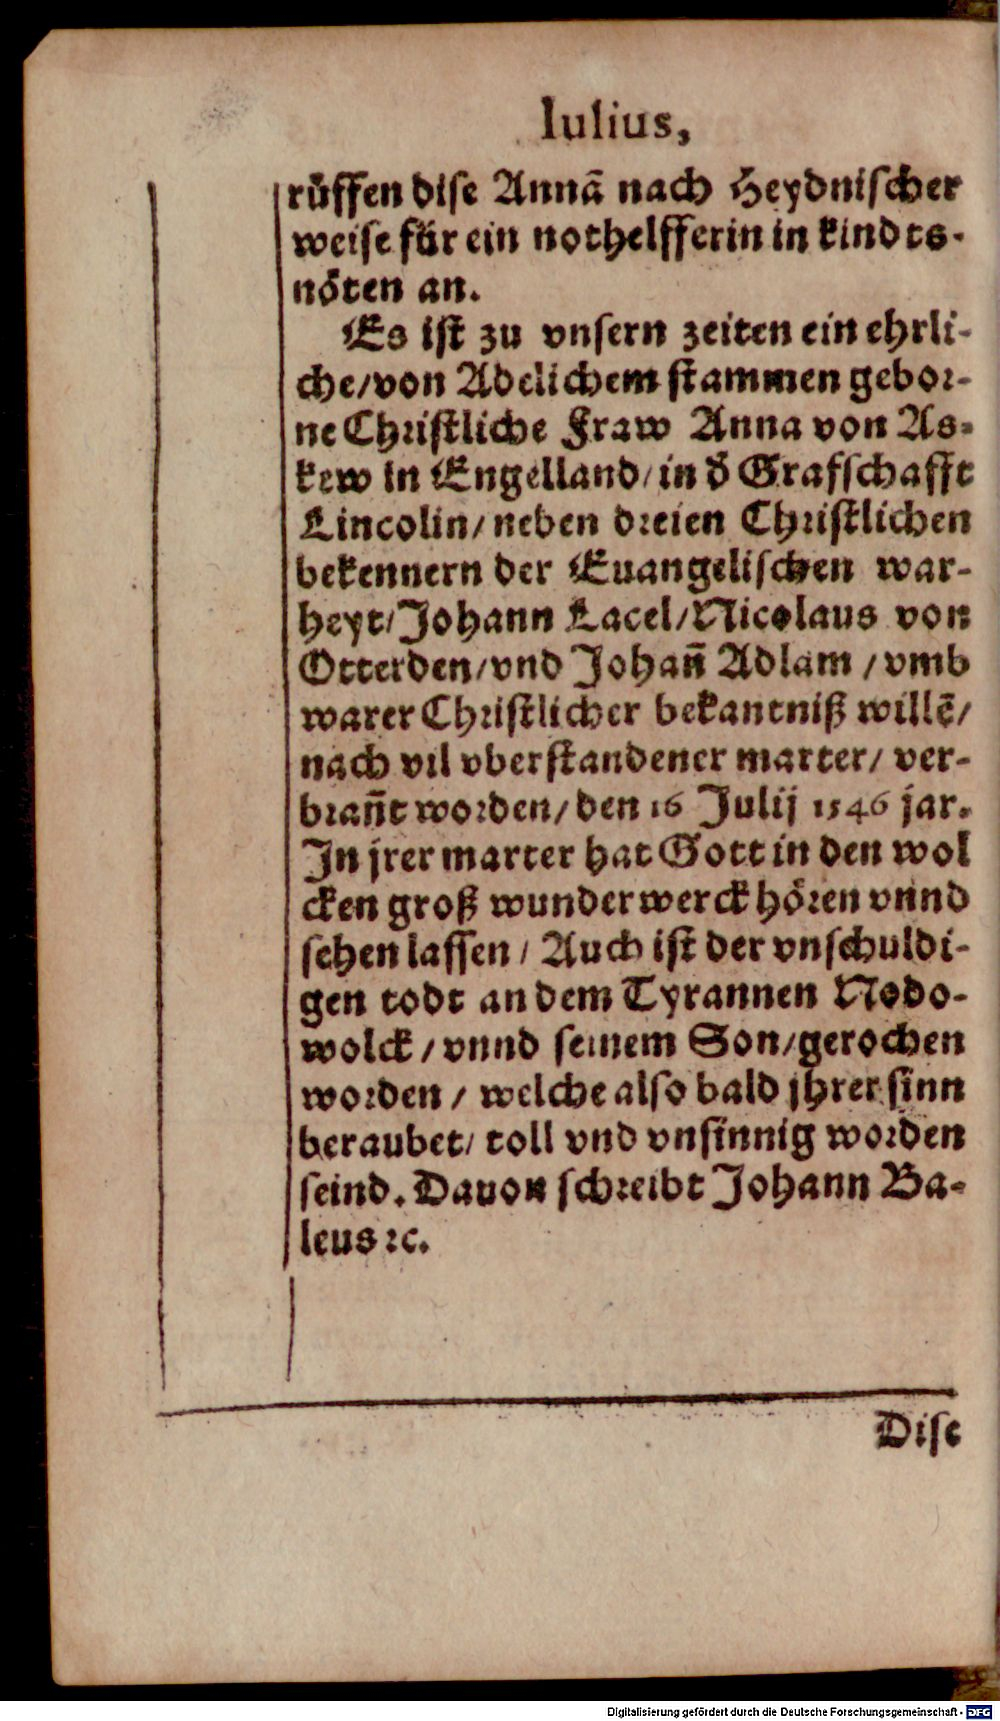 Iulius,
rüffen dise Annã nach Heydnischer
weise für ein nothelfferin in kindts-
nöten an.
Es ist zu vnsern zeiten ein ehrli-
che/von Adelichem stammen gebor-
ne Christliche Fraw Anna von As-
kew in Engelland/in d̃ Grafschafft
Lincolin/neben dreien Christlichen
bekennern der Euangelischen war-
heyt/Johann Lacel/Nicolaus von
Otterden/vnd Johañ Adlam /vmb
warer Christlicher bekantniß willẽ/
nach vil vberstandener marter/ ver-
brañt worden/den 16 Julij 1546 jar.
In jrer marter hat Gott in den wol
cken groß wunderwerck hören vnnd
sehen lassen / Auch ist der vnschuldi-
gen todt an dem Tyrannen Nodo-
wolck / vnnd seinem Son/gerochen
worden / welche also bald jhrer sinn
beraubet/ toll vnd vnsinnig worden
seind. Dauon schreibt Johann Ba-
leus ꝛc.
Dise
Digitalisierung gefördert durch die Deutsche Forschungsgemeinschaft - DFG